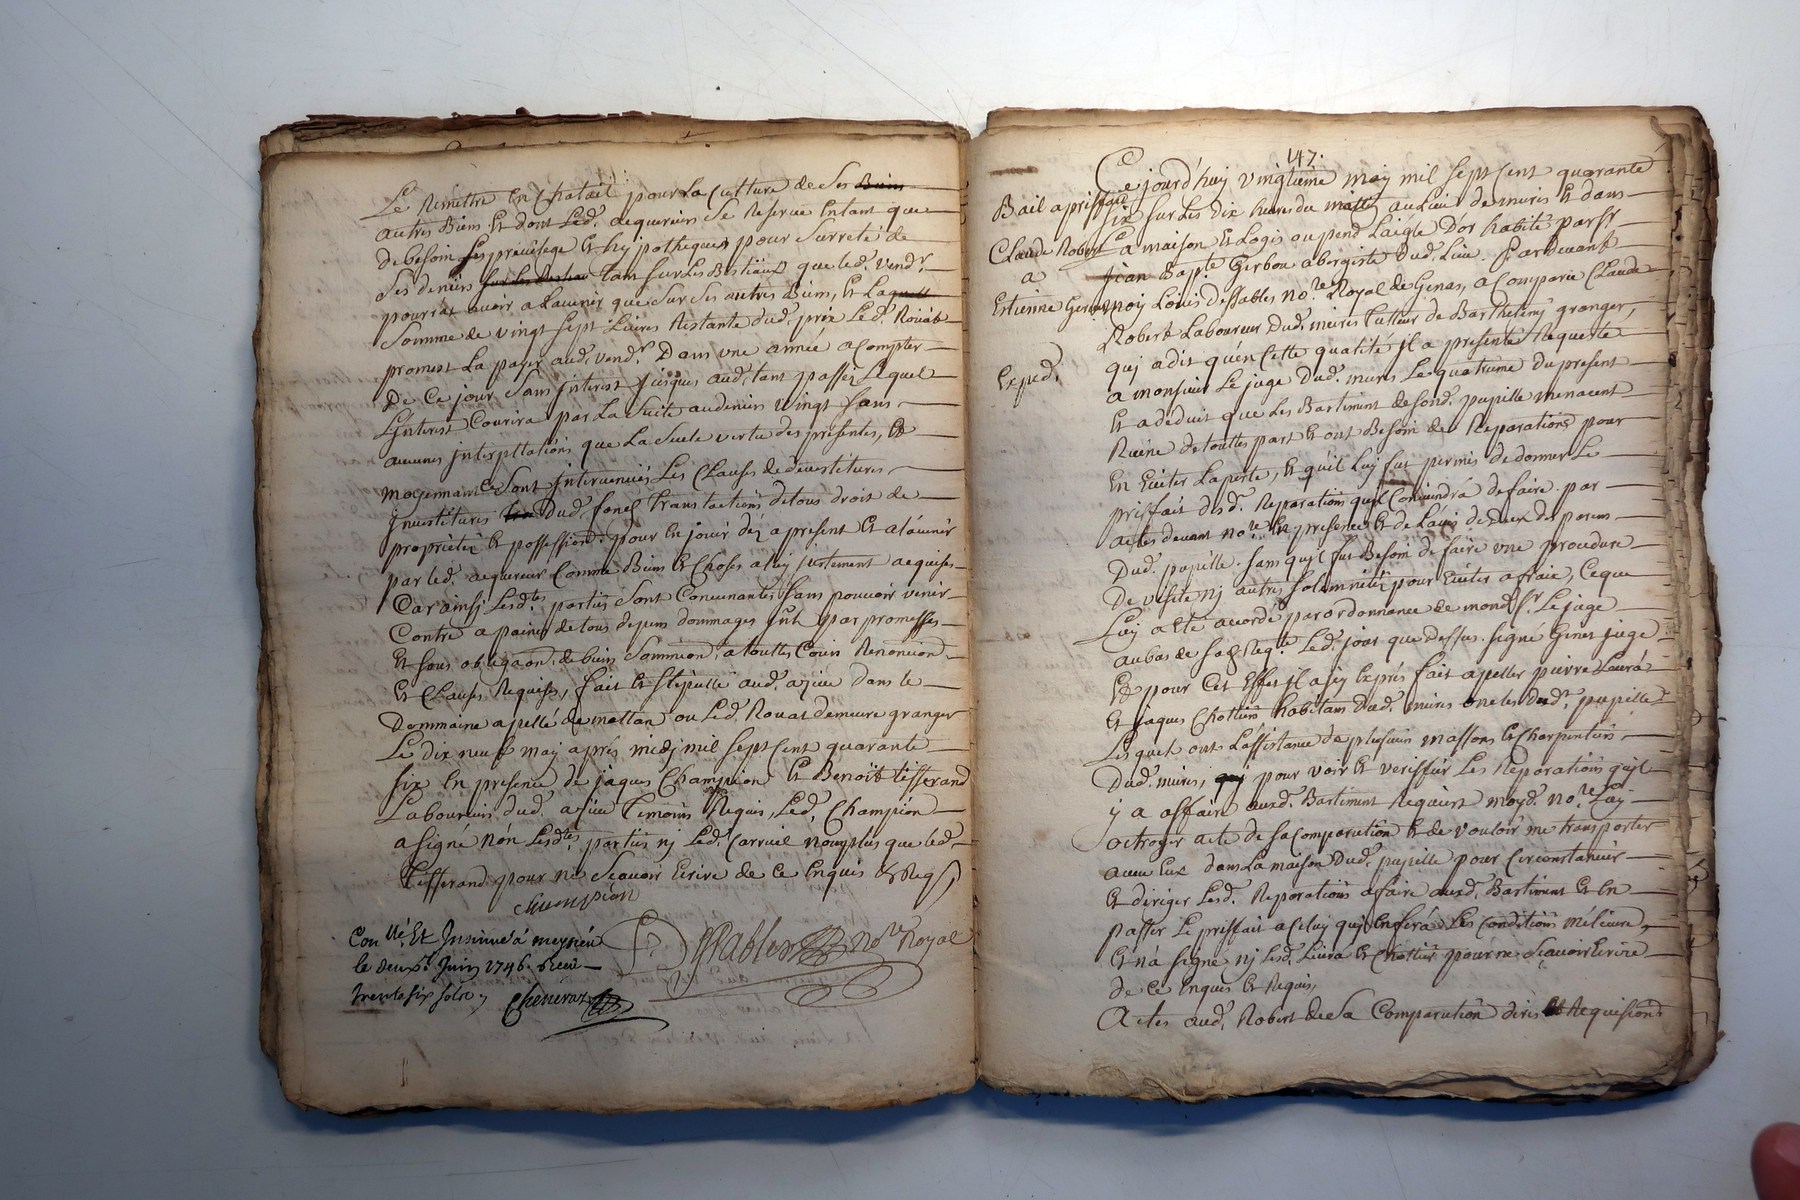 Le Remettre En Chatail pour La Culture de Ses Biens
autres Biens Et dont Led. acquereur Se Reserve Entant que
de besoin Ses privilege Et hypotheques pour Surreté de
Ses deniers tant Sur Les Bestiaux que led. vendr.
pourrat avoir a L'avenir que Sur Ses autres Biens, Et La
Somme de vingt Sept Livres Restante dud. prix Led. Rouat
promest La payer aud. vendr. Dans une année a Compter
De Ce jour Sans Interest jusques aud. tant passez Lequel
Interest Courira par La Suite au denier vingt Sans
aucunes Interpellations que La Seule vertu des presentes, Et
moyennant Ce Sont Intervenues Les Clauses de devestitures
Investitures Dud. fond translactions de tous droit de
proprietéz Et possession pour En jouir déz a present Et a L'avenir
par led. acquereur Comme Biens Et Choses a luy justement acquises
Car ainsi Lesdtes. parties Sont Convenantes Sans pouvoir venir
Contre a paine de tous depens dommages Inth. par promesses
Et Sous obligaon. de biens Soumission a touttes Cours Renonciaon
Et Clauses Requises, fait Et Stipullé aud. azieu dans le
Dommaine apellé de mattan ou Led. Rouat demeure granger
Le dix neuf may aprés midy mil Sept Cent quarante
Six En presence de jaques Champion Et Benoit tisserand
Laboureurs dud. azieu Temoins Requis, Led. Champion
a Signé Non Lesdtes. parties nj Led. Carruel nomplus que led.
Tisserand pour ne Scavoir Ecrire de Ce Enquis Et Req.
Champion
Deffables Nore. Royal
Conllé. Et Insinué á meyzieu
le deuxe. Juin 1746. Receu
trente six sols
Chenevaz
147.
Bail a priffait
Claude Robert
a
Estienne
Exped.
Ce jourd'huy vingtieme may mil Sept Cent quarante
Six Sur Les dix heures du matin au Lieu de mures Et dans
La maison Et Logis ou pend L'aigle D'or habité par Sr.
Jean Bapte. Gerbou abergiste Dud. Lieu. Pardevant
moy Louis deffables Nore. Royal de Genas, a Comparu Claude
Robert Laboureur Dud. mures Tutteur de Barthelemy granger,
quj a dit qu'en Cette qualité jl a presenté Requeste
a monsieur Le juge Dud. mures Le quatrieme du present
Et a deduit que Les Bastiment de Sond. pupille menacent
Ruine de touttes part Et ont Besoin de Reparations pour
En Eviter La perte, Et qu'il Luy fut permis de donner Le
priffait desd. Reparations qu'il Conviendrá de faire par
actes devant Nore. En presence Et de L'avis de deux des parens
Dud. pupille Sans qu'jl fut Besoin de faire une procedure
De visite nj autres Solemnitéz pour Eviter a fraix, Ce que
Luy a Eté acordé par ordonnance de mond. Sr. Le juge
au bas de Sa Reqte. Led. jour que dessus. Signé Ginet juge
Et pour Cet Effet jl a icy Exprés fait apeller pierre
Et jaques Chollier habitans Dud. mures oncles Dud. pupille
Lesquels ont L'assistance de plusieurs massons Et Charpentiers
Dud. mures, pour voir Et veriffier Les Reparations qu'jl
y a affaire auxd. Bastiment Requiert moyd. Nore. Luy
octroyer acte de Sa Comparution Et de vouloir me transporter
avec Eux dans La maison Dud. pupille pour Circonstancier
Et diriger Lesd. Reparations a faire auxd. Bastiment Et En
passer Le priffait a Celuy quj En ferá Les Conditions mélieure,
Et n'á Signé nj Lesd. Et Chollier pour ne Scavoir Ecrire
de Ce Enquis Et Requis,
Actes aud. Robert de Sa Comparution dires Et Requisions